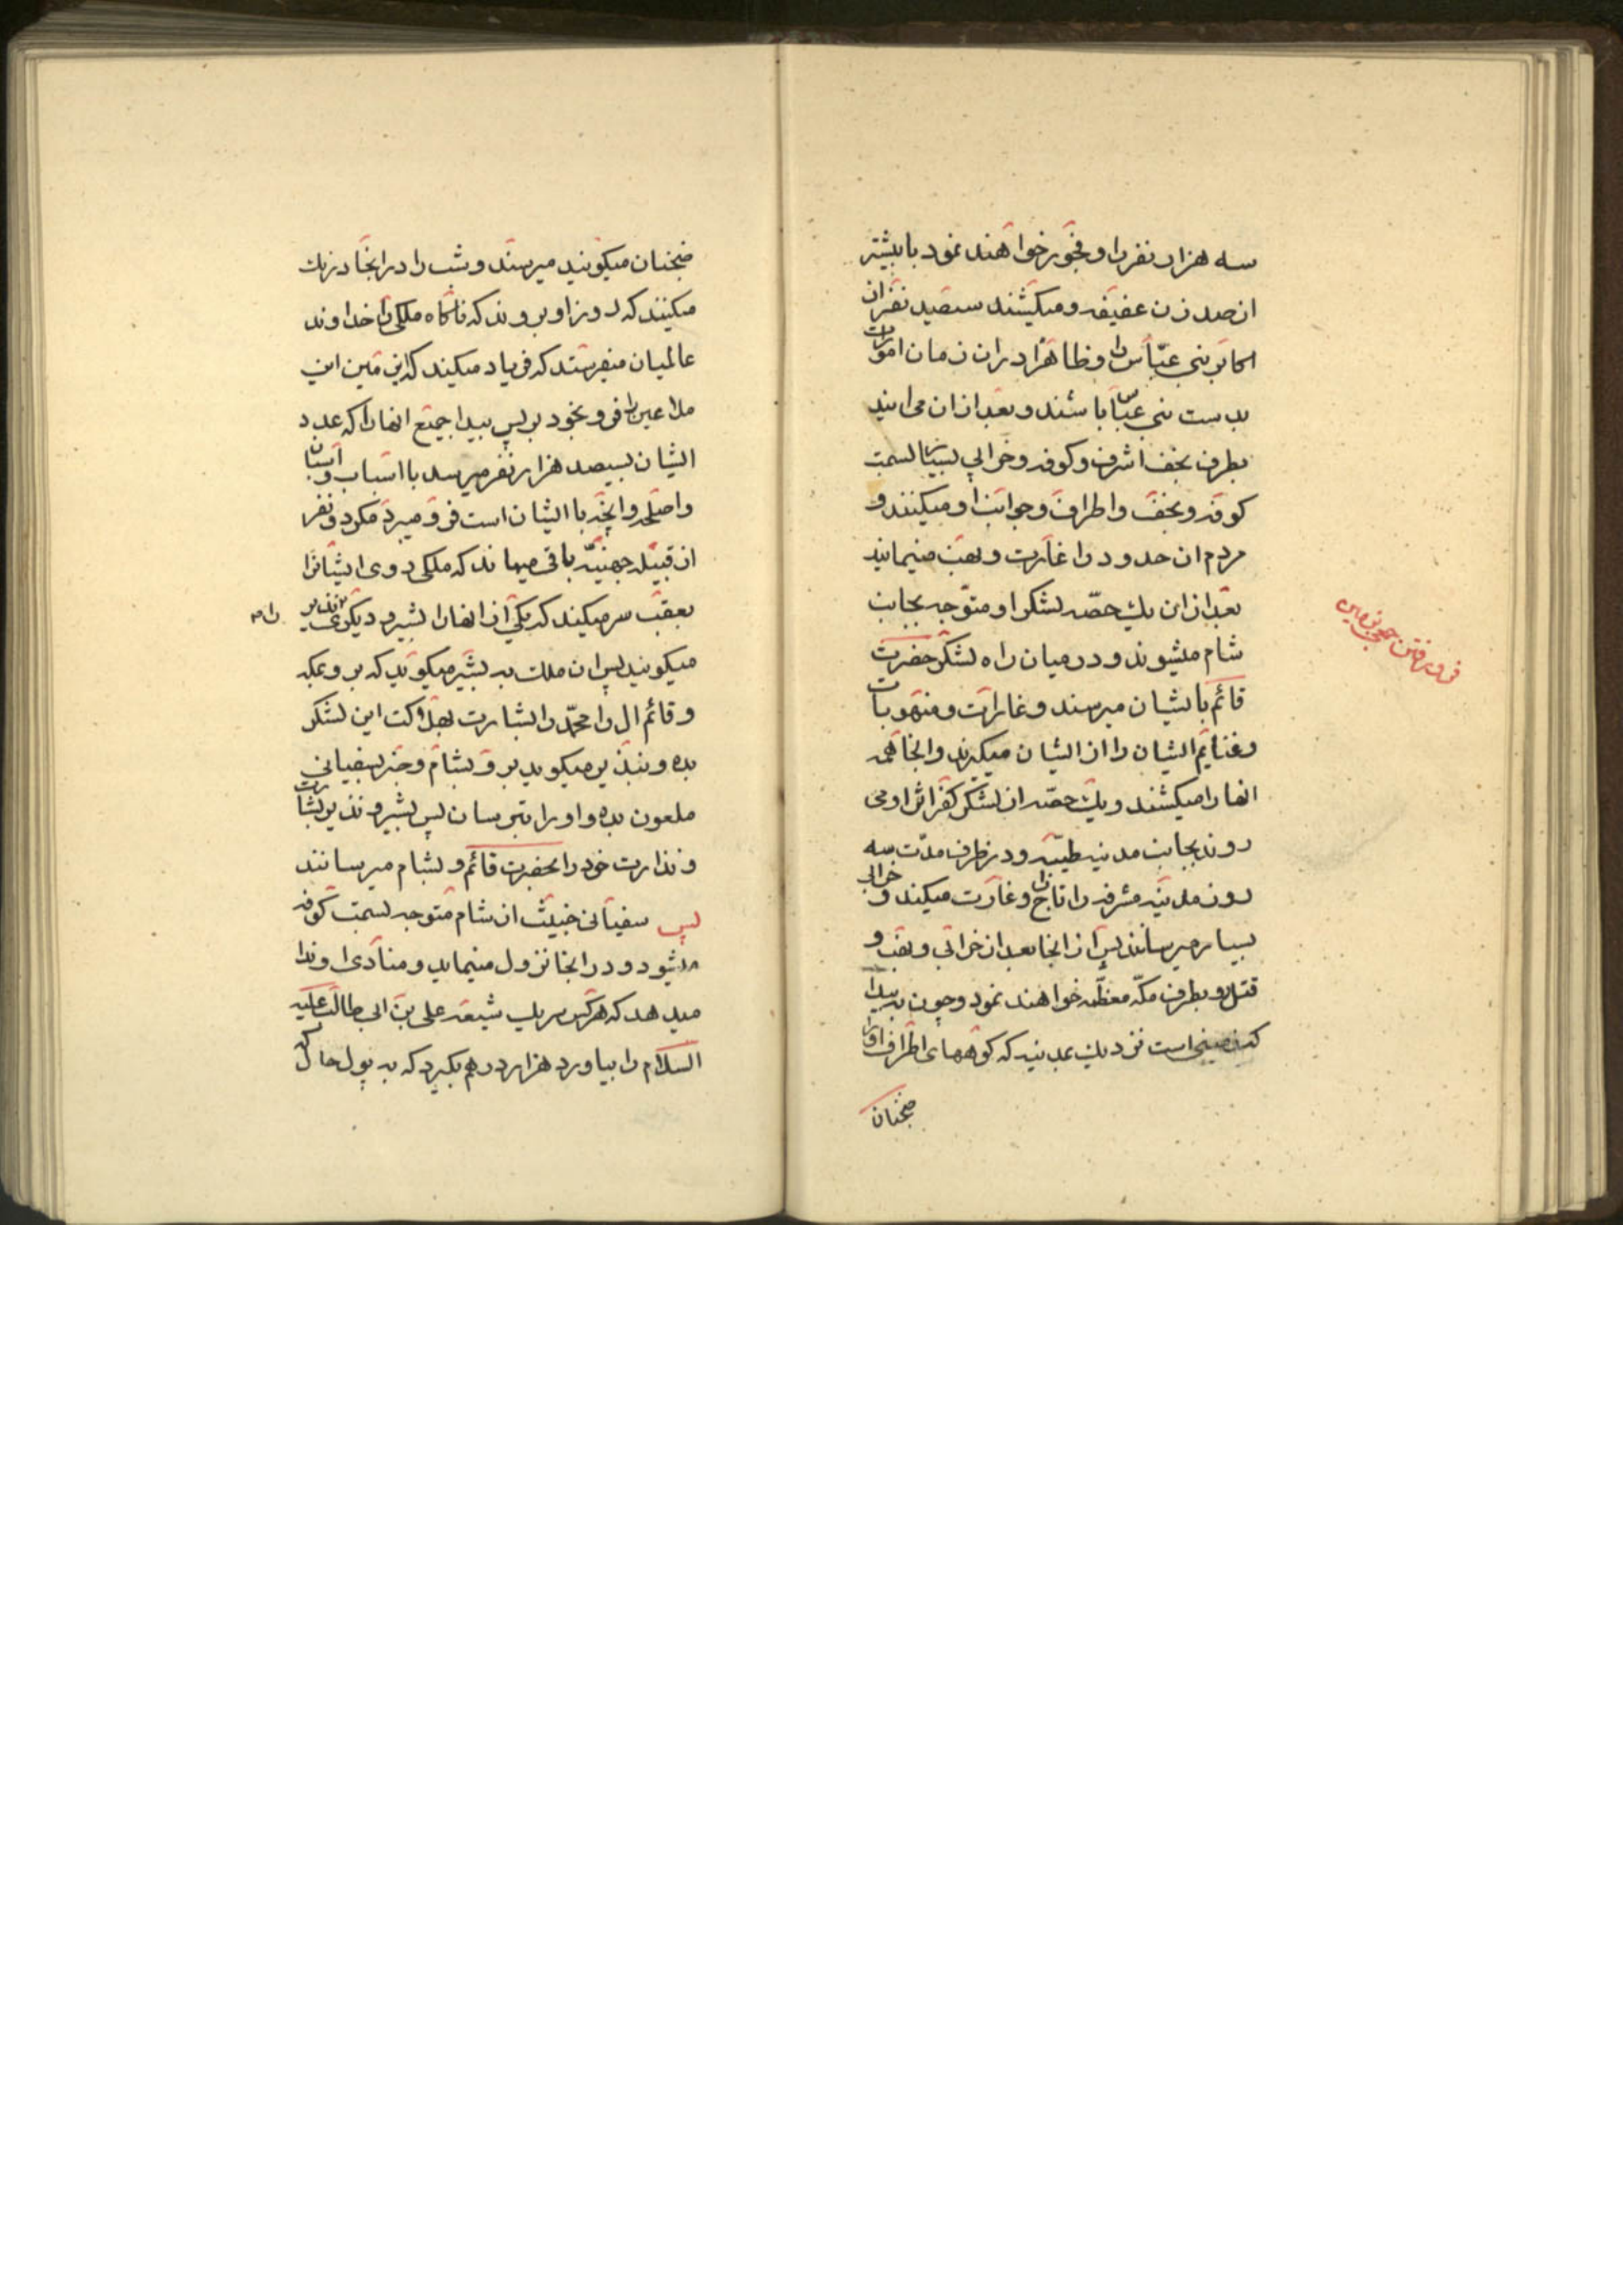 سه هزار نفر را و فجور خواهند نمود با بیشتر
از صد زن عفیفه و میکشند سیصد نفر از
اکابر بنی عباس را و ظاهرا در ان زمان امورات
بدست بنی عباس باشند و بعد از ان می ایند
بطرف نجف اشرف و کوفه و خرابی بسیار بسمت
کوفه و نجف و اطراف و جوانب او میکنند و
مردم ان حدود را غارت و نهب مینمایند
بعد از این یک حصه لشکر او متوجه بجانب
شام میشوند و در میان راه لشکر حضرت
قائم با ایشان میرسند و غارات و منهوبات
و غنایم ایشان را از ایشان میگیرند و انجا همه
انها را میکشند و یک حصه از لشکر کفر اثر او می
روند بجانب مدینه طیبه و در ظرف مدت سه
روز مدینه مشرفه را تاراج و غارت میکند و خرابی
بسیار میرسانند پس از انجا بعد از خرابی و نهب و
قتل رو بطرف مکه معظمه خواهند نمود و چون به بیدا
که است نزدیک بمدینه که کوههای اطراف او را
ضجنان
فرو رفتن بزمین
ضجنان میکویند میرسند و شب را در انجا درنک
میکنند که روز او بروند که ناکاه ملکی را خداوند
عالمیان میفرستد که فریاد میکند که این زمین این
ملاعین را فرو بخود بر پس بیدا جمیع انها را که عدد
ایشان بسیصد هزار نفر میرسد با اسباب و اسبان
و اسلحه و انچه با ایشان است فرو میبرد مکر دو نفر
از قبیله جهنیه باقی میماند که ملکی روی ایشانرا
بعقب سر میکند که یکی از انها را بشیر و دیکری نذیر را
میکویند پس ان ملک به بشیر میکوید که برو بمکه
و قائم ال را محمد را بشارت بهلاکت این لشکر
بده و بنذیر میکوید برو بشام و خبر بسفیانی
ملعون بده و او را بترسان پس بشیر و نذیر بشارت
و نذارت خود را بحضرت قائم و بشام میرسانند
پس سفیانی خبیث از شام متوجه بسمت کوفه
میشود و در انجا نزول مینماید و منادی او ندا
میدهد که هر کس سر یک شیعه علی بن ابی طالب علیه
السلام را بیاورد هزار درهم بکیرد که به پول حال